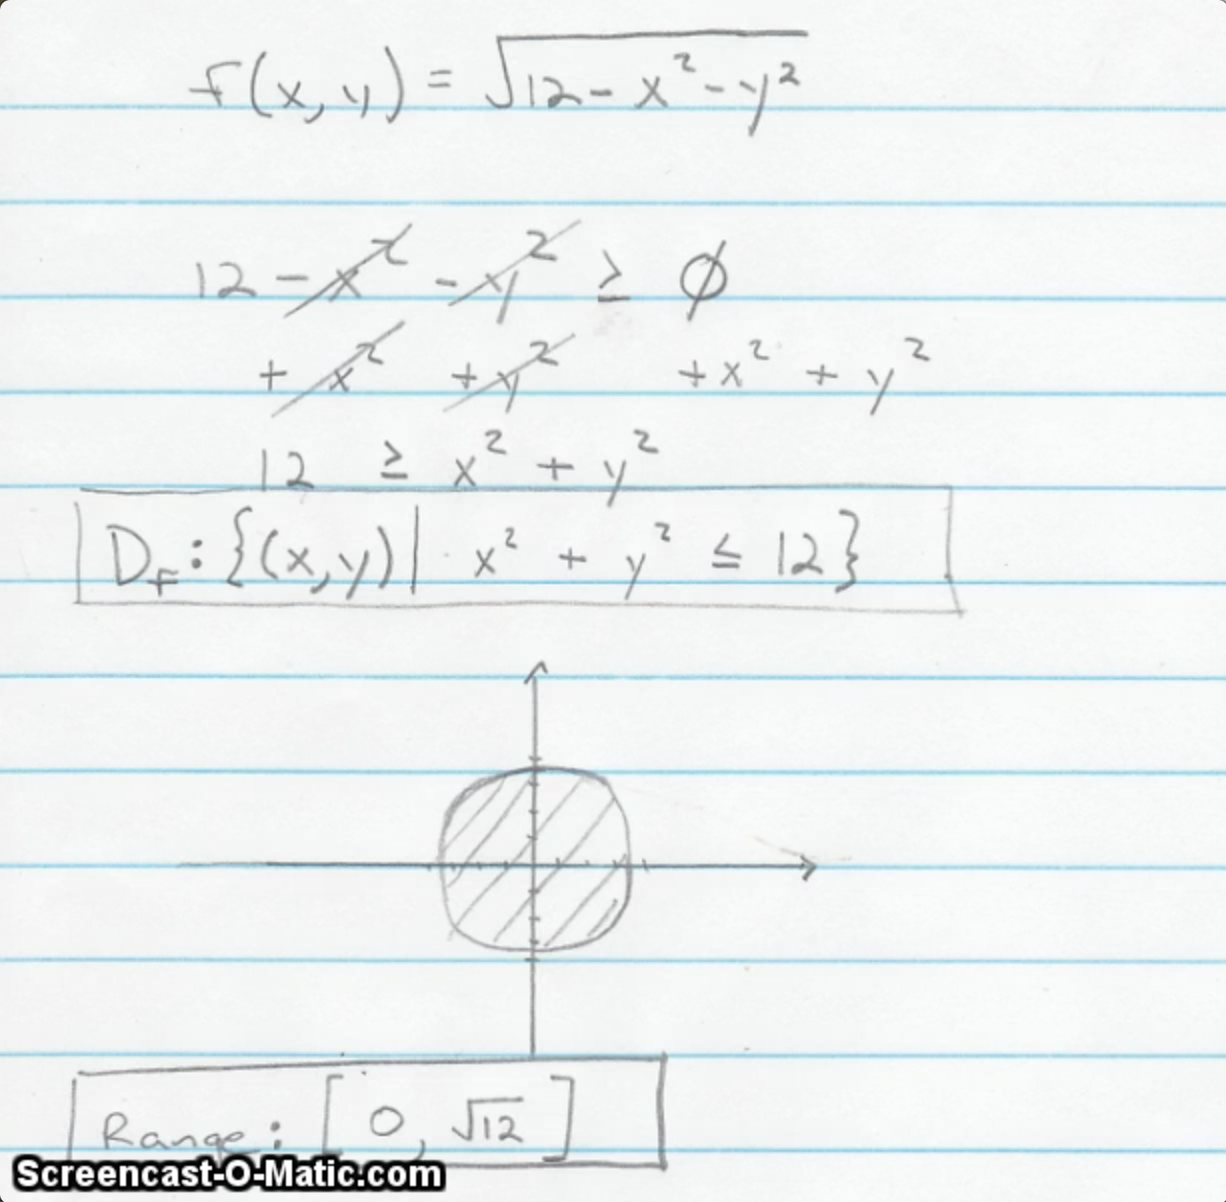 f(x,y) = √12-x²-y²
12 - x² - y² ≥ ∅
+ x² + y² + x² + y²
12 ≥ x² + y²
D_F: {(x,y)| x² + y² ≤ 12}
Range: [0, √12]
Screencast-O-Matic.com